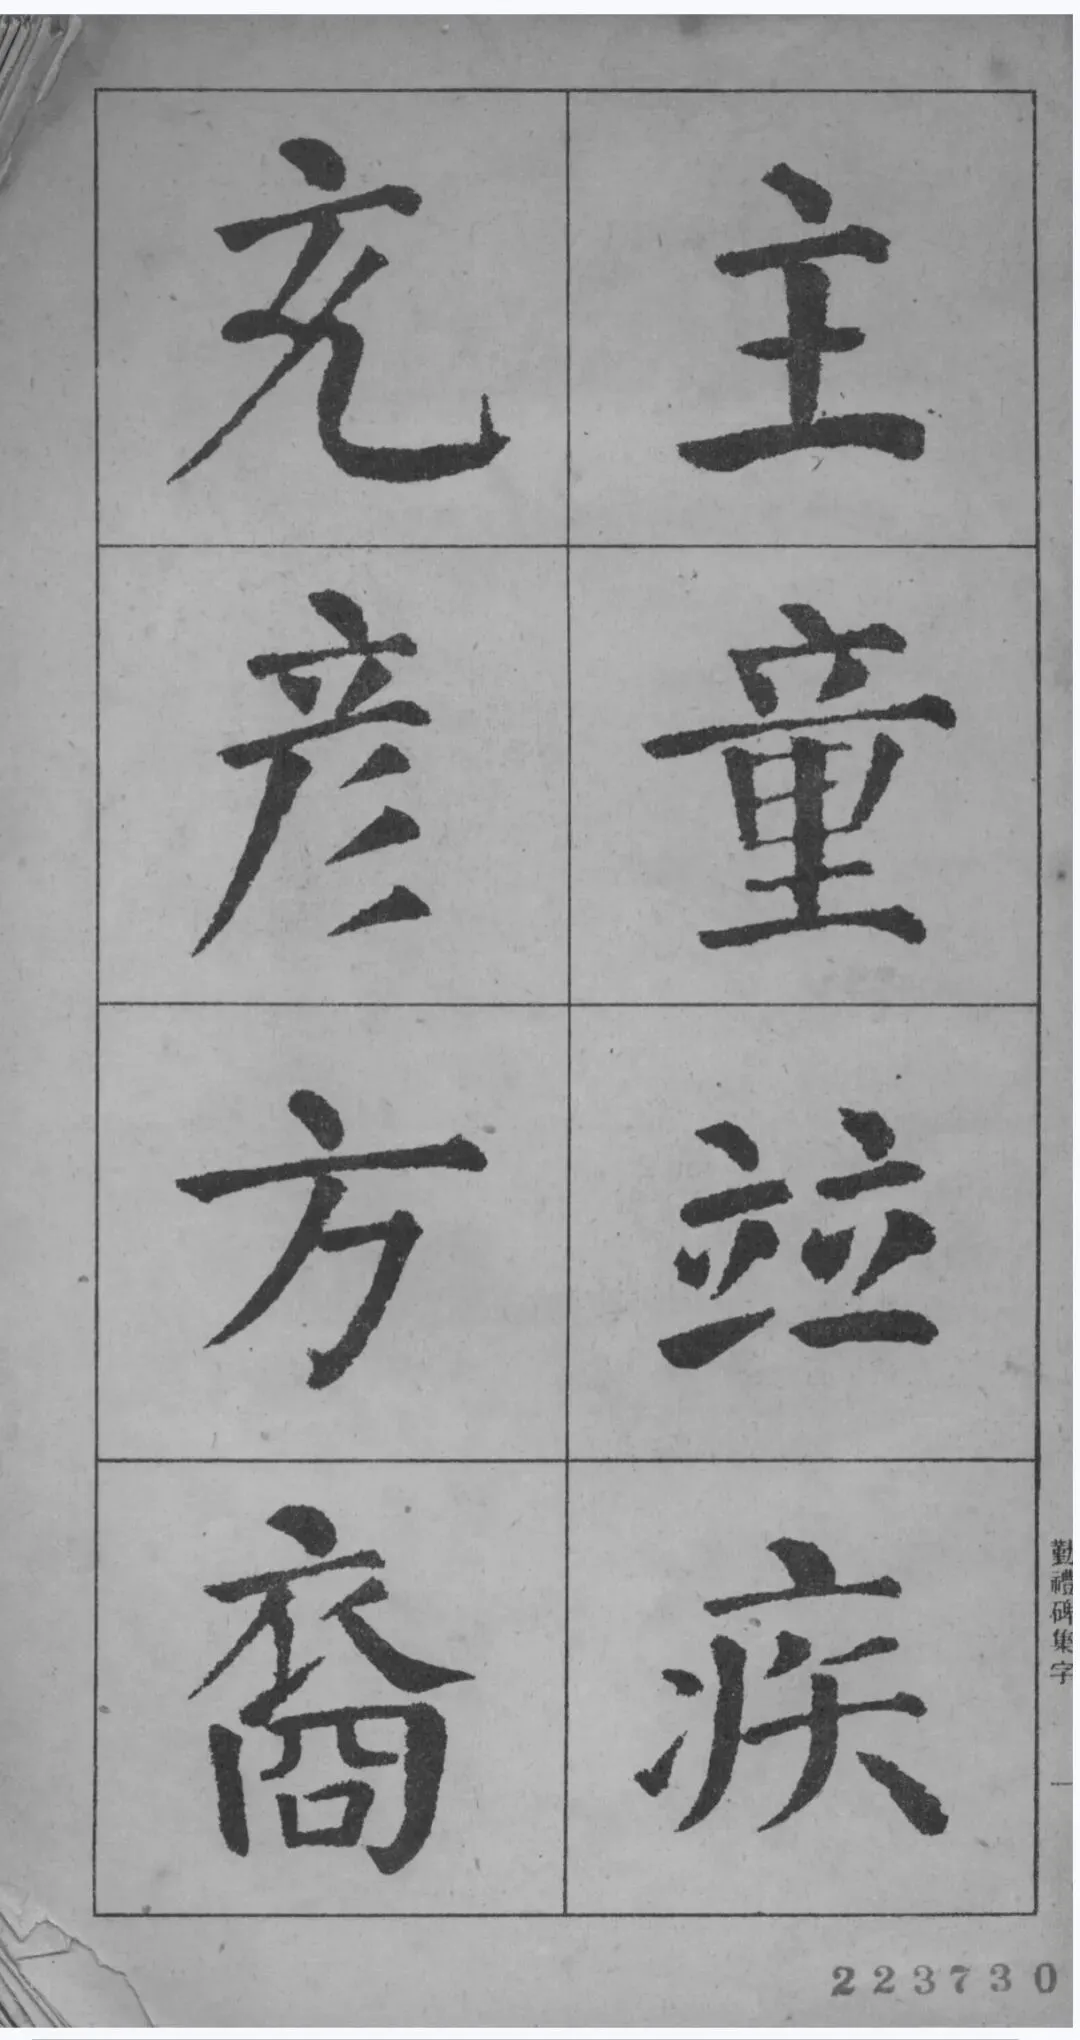 主童竝疾
充彥方裔
勤禮碑集字
一
223730